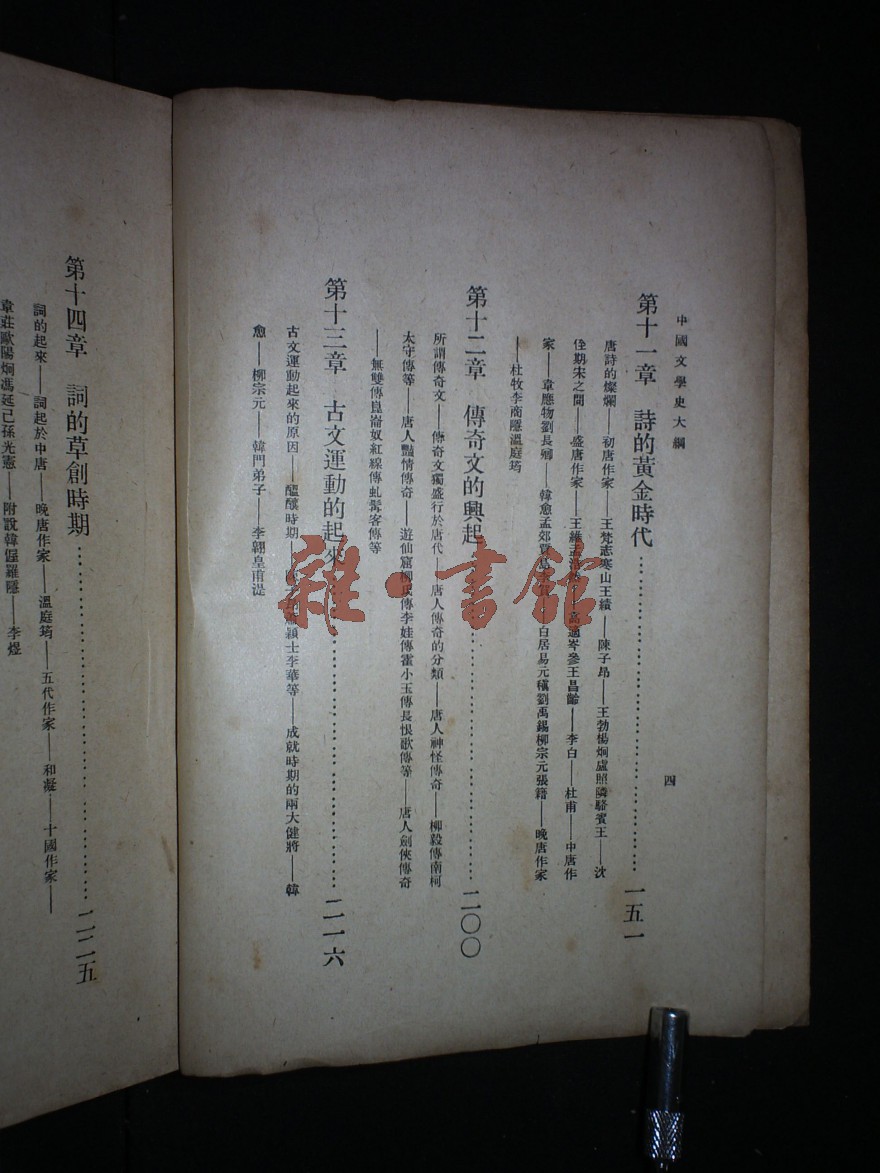 中國文學史大綱
四
第十一章 詩的黃金時代…………一五一
唐詩的燦爛——初唐作家——王梵志寒山王績——陳子昂——王勃楊炯盧照隣駱賓王——沈
佺期宋之問——盛唐作家——王維孟浩然——高適岑參王昌齡——李白——杜甫——中唐作
家——韋應物劉長卿——韓愈孟郊賈島——白居易元稹劉禹錫柳宗元張籍——晚唐作家
——杜牧李商隱溫庭筠
第十二章 傳奇文的興起…………二〇〇
所謂傳奇文——傳奇文獨盛行於唐代——唐人傳奇的分類——唐人神怪傳奇——柳毅傳南柯
太守傳等——唐人豔情傳奇——遊仙窟柳氏傳李娃傳霍小玉傳長恨歌傳等——唐人劍俠傳奇
——無雙傳崑崙奴紅線傳虬髯客傳等
第十三章 古文運動的起來…………二一六
古文運動起來的原因——醞釀時期——蕭穎士李華等——成就時期的兩大健將——韓
愈——柳宗元——韓門弟子——李翱皇甫湜
第十四章 詞的草創時期…………二二五
詞的起來——詞起於中唐——晚唐作家——溫庭筠——五代作家——和凝——十國作家——
韋莊歐陽炯馮延巳孫光憲——附說韓偓羅隱——李煜
雜·書館